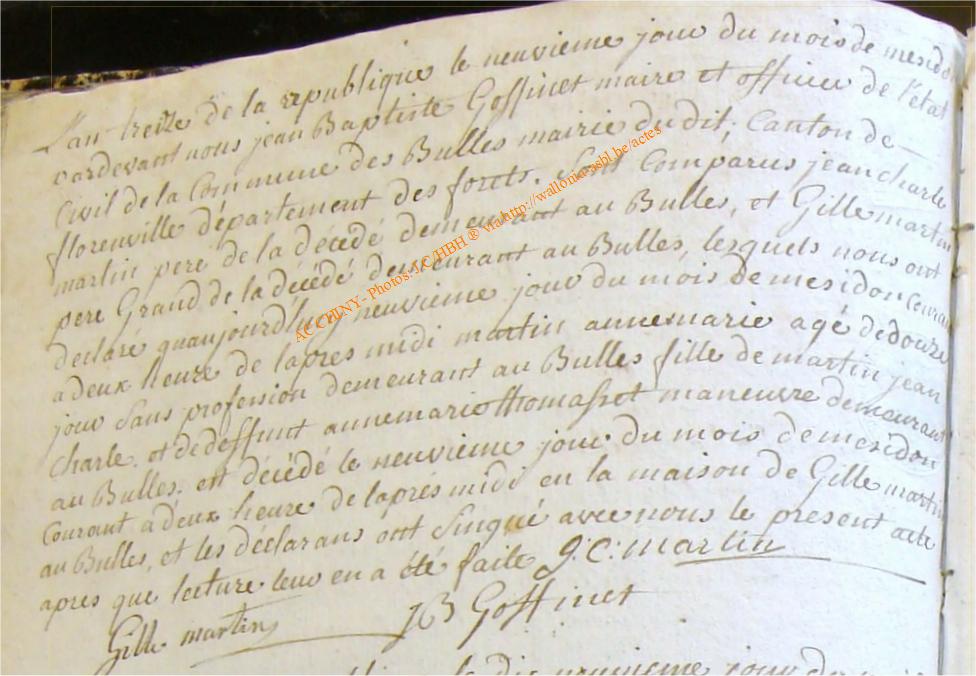 L'an treize de la republique le neuvieme jour du mois de mesidor
pardevant nous jean Baptiste Goffinet maire et officier de l'etat
Civil de la Commune des Bulles mairie dudit, Canton de
florenville département des forets. Sont Comparus jean charle
martin pere de la décédé demeurant au Bulles, et Gille martin
pere Grand de la décédé demeurant au Bulles, lesquels nous ont
declaré quaujourdhuy neuvieme jour du mois de mesidor Courant
a deux heure de lapres midi martin annemarie agé de douze
jour Sans profession demeurant au Bulles fille de martin jean
Charle. et de deffunt annemarie thomasset maneuvre demeurant
au Bulles. est décédé le neuvieme jour du mois de mesidor
Courant a deux heure de laprés midi en la maison de Gille martin
au Bulles, et les déclarans ont Singné avec nous le present acte
apres que lecture leur en a été faite J: C: martin
Gille martin JB Goffinet
jour du
AC CHINY- Photos: JC/HBH ® via http://wallonia-asbl.be/actes